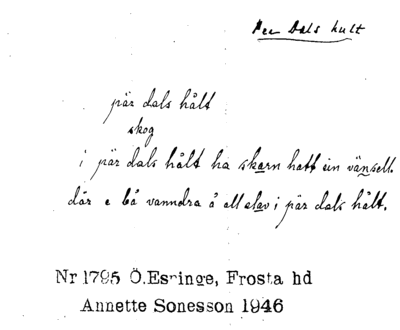 Per Dals hult
pär dals hålt
skog
i pär dals hålt ha skarn hatt ein vänsell.
där e bå vanndra å all elav i pär dals hålt.
Nr 1795 Ö.Espinge, Frosta hd
Annette Sonesson 1946